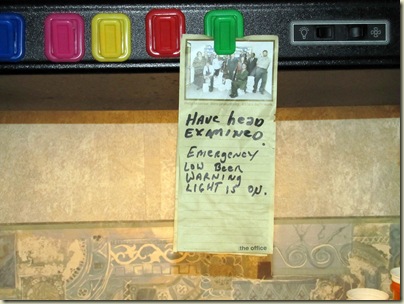 HAVE head
EXAMINED.
EMERgENCY
LOW BEER
WARNING
LIGHT IS ON.
the office